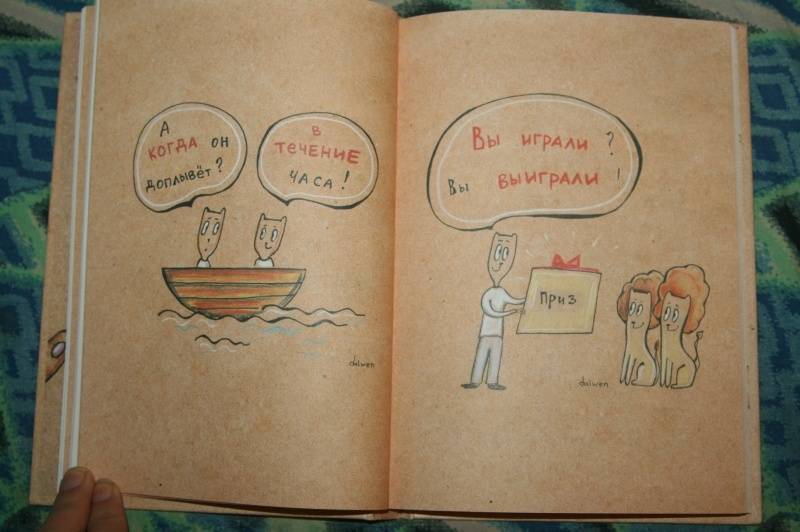 А
когда он
доплывёт?
В
течение
часа!
dalwen
Вы играли?
Вы выиграли!
Приз
dalwen